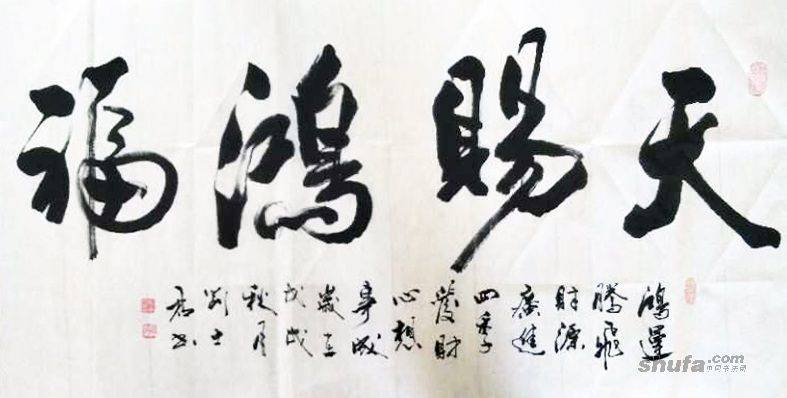 天賜鴻福
鴻運
騰飛
財源
廣進
四季
發財
心想
事成
歲在
戊戌
秋月
劉士
shufa.com
中国书法网